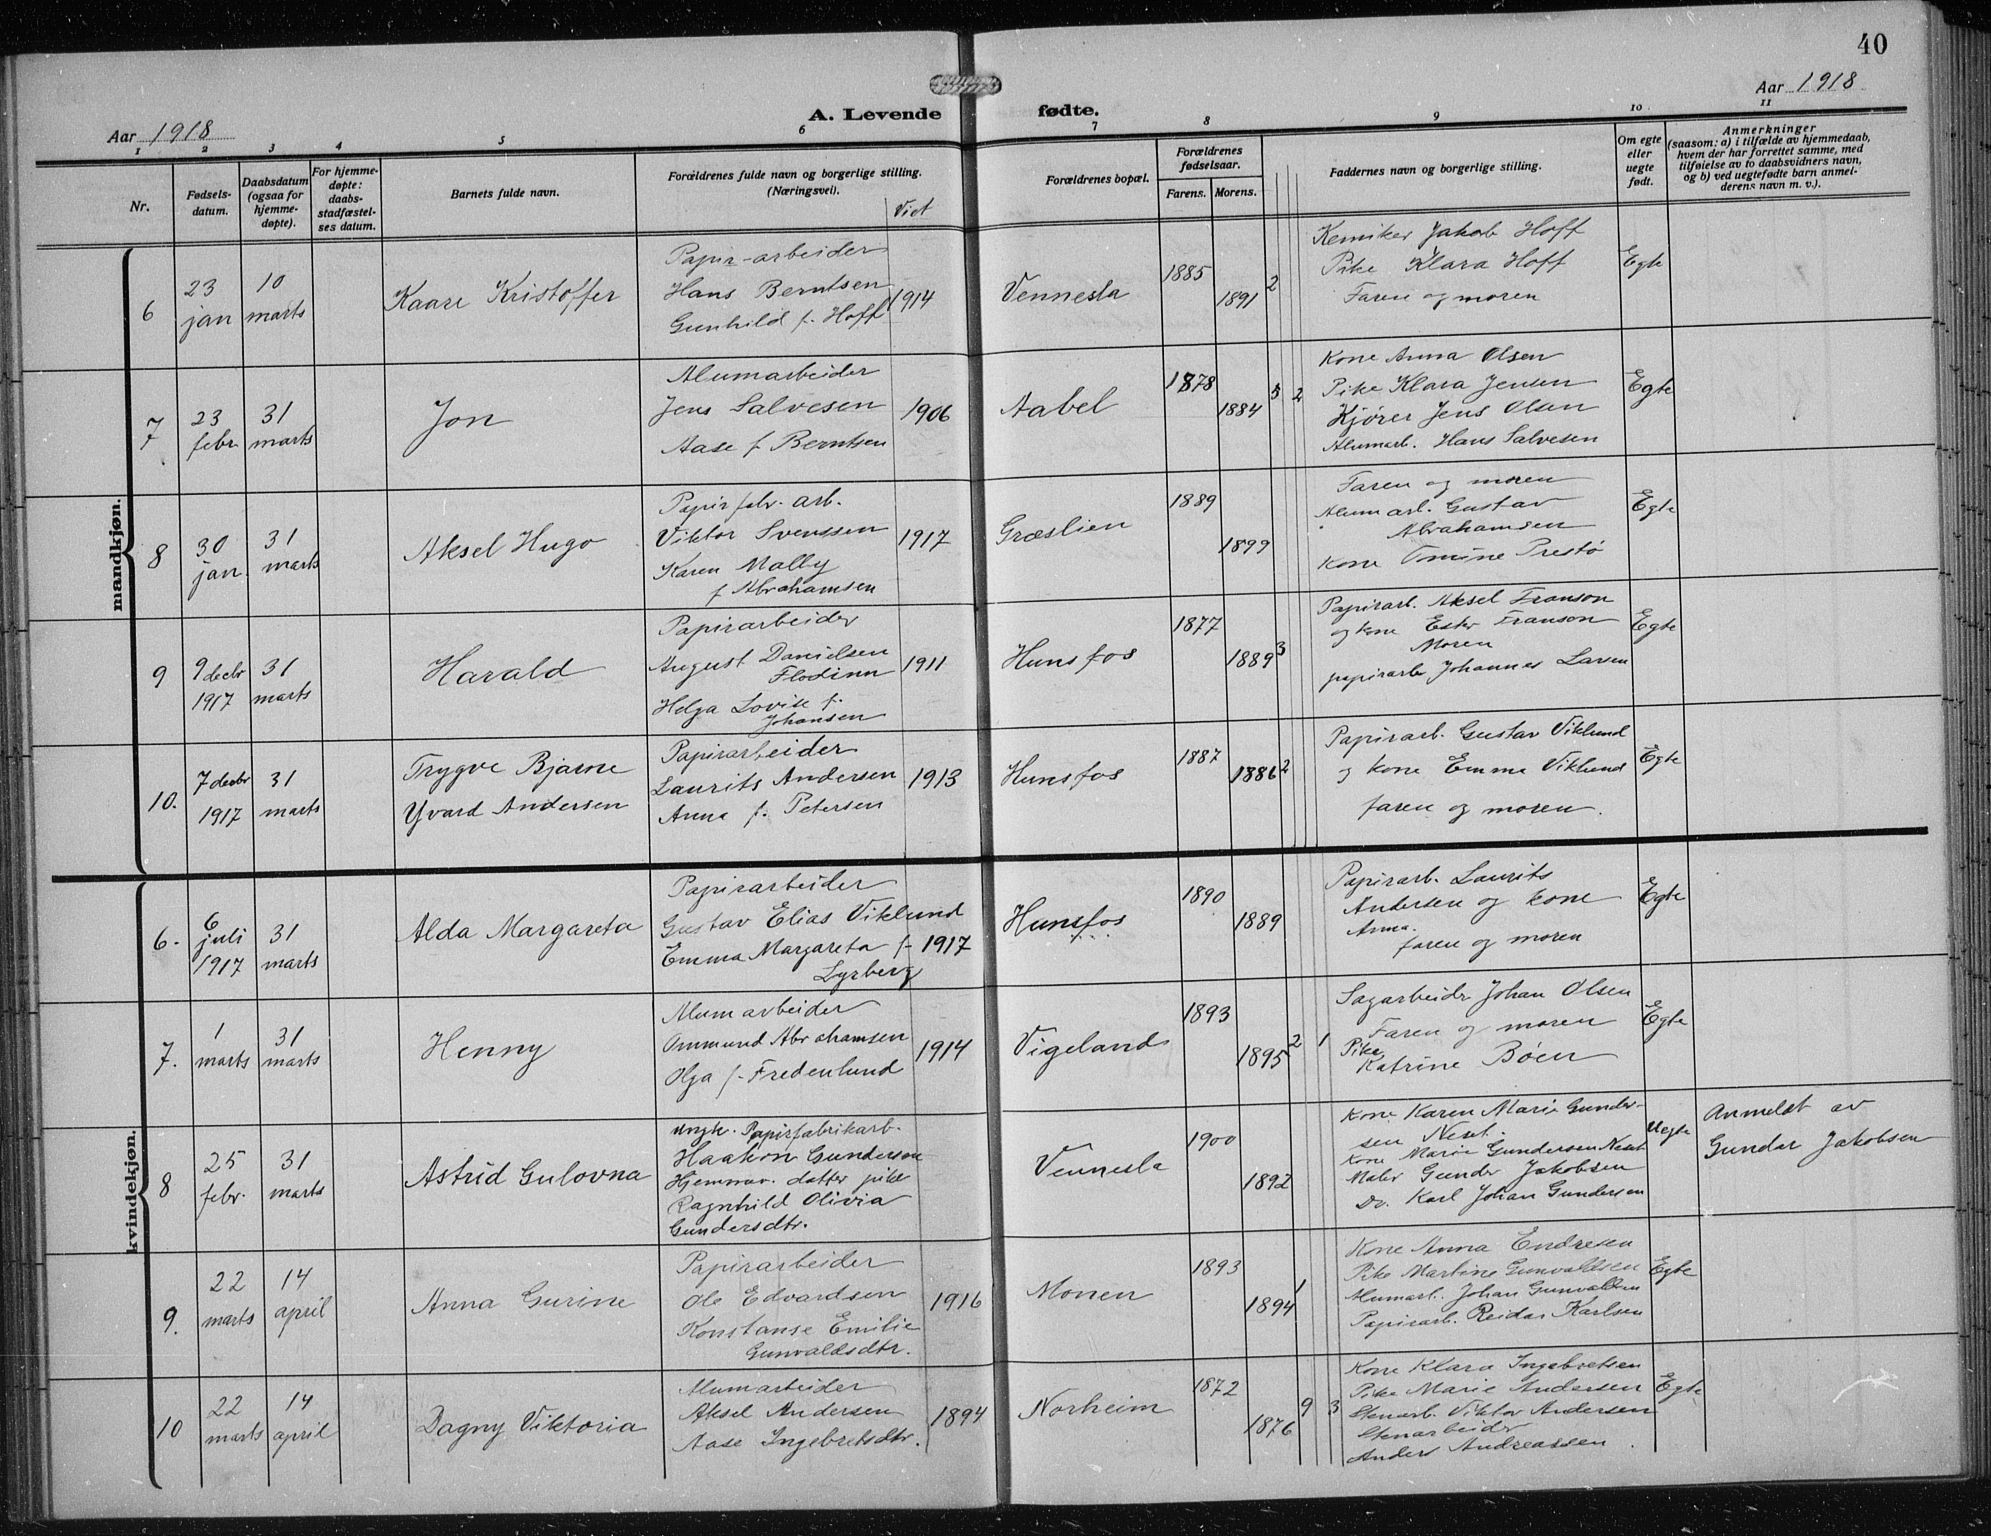 40
Aar 1918
A. Levende fødte.
Aar 1918
1 2 3 4 5 6 7 8 9 10 11
Nr.
Fødsels-
datum.
Daabsdatum
(ogsaa for
hjemme-
døpte).
For hjemme-
døpte:
daabs-
stadfæstel-
ses datum.
Barnets fulde navn.
Forældrenes fulde navn og borgerlige stilling.
(Næringsvei).
Viet
Forældrenes bopæl.
Forældrenes
fødselsaar.
Farens. Morens.
Faddernes navn og borgerlige stilling.
Om egte
eller
uegte
født.
Anmerkninger
(saasom: a) i tilfælde av hjemmedaab,
hvem der har forrettet samme, med
tilføielse av to daabsvidners navn,
og b) ved uegtefødte barn anmel-
derens navn m. v.).
mandkjøn.
6
23
jan
10
marts
Kaare Kristoffer
Papir-arbeider
Hans Berntsen
Gunhild f. Hoff
1914
Vennesla
1885
1891
2
Kemiker Jakob Hoff
Pike Klara Hoff
Faren og moren
Egte
7
23
febr.
31
marts
Jon
Alumarbeider
Jens Salvesen
Aase f Berntsen
1906
Aabel
1878
1884
5 2
Kone Anna Olsen
Pike Klara Jensen
Kjører Jens Olsen
Alumarb. Hans Salvesen
Egte
8
30
jan.
31
marts
Aksel Hugo
Papirfabr. arb.
Viktor Svenssen
Karen Malby
f Abrahamsen
1917
Græslien
1889
1899
Faren og moren
Alumarb. Gustav
Abrahamsen
Kone Omine Prestø
Egte
9
9 decbr
1917
31
marts
Harald
Papirarbeider
August Danielsen
Flodinn
Helga Lovise f.
Johansen
1911
Hunsfos
1877
1889
3
Papirarb. Aksel Franson
og kone Ester Franson
Moren
papirarb Johannes Larsen
Egte
10.
7 decbr
1917
31
marts
Trygve Bjarne
Yvard Andersen
Papirarbeider
Laurits Andersen
Anna f. Petersen
1913
Hunsfos
1887
1886
2
Papirarb. Gustav Viklund
og kone Emma Viklund
faren og moren.
Egte
kvindekjøn.
6.
6
juli
1917
31
marts
Alda Margareta
Papirarbeider
Gustav Elias Viklund
Emma Margareta f.
Lyrberg
1917
Hunsfos
1890
1889
Papirarb. Laurits
Andersen og kone
Anna.
faren og moren
Egte
7.
1
marts
31
marts
Henny
Alumarbeider
Ommund Abrahamsen
Olga f. Fredenlund
1914
Vigelands
1893
1895
2 1
Sagarbeider Johan Olsen
Faren og moren
Pike
Katrine Bøen
Egte
8
25
febr.
31
marts
Astrid Gulovna
Ungk. Papirfabrikarb.
Haakon Gunderson
Hjemmev. datter pike
Ragnhild Olivia
Gundersdtr.
Vennesla
1900
1892
Kone Karen Marie Gunder-
sen Neset.
Kone Marie Gundersen Neset
Maler Gunder Jakobsen
Do. Karl Johan Gundersen
Uegte
Anmeldt av
Gunder Jakobsen
9.
22
marts
14
april
Anna Gurine
Papirarbeider
Ole Edvardsen
Konstanse Emilie
Gunvaldsdtr.
1916
Monen
1893
1894
1
Kone Anna Endresen
Pike Martine Gunvaldsen
Alumarb. Johan Gunvaldsen
Papirarb. Reidar Karlsen
Egte
10
22
marts
14
april
Dagny Viktoria
Alumarbeider
Aksel Andersen
Aase Ingebretsdtr.
1894
Norheim
1872
1876
9 3
Kone Klara Ingebretsen
Pike Marie Andersen
Stenarb. Viktor Andersen
Stenarbeider
Anders Andreassen
Egte